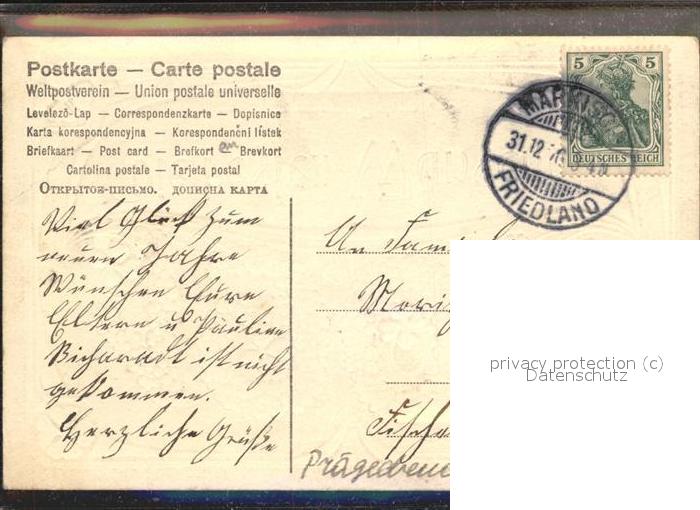 Postkarte — Carte postale
Weltpostverein — Union postale universelle
Levelező-Lap — Correspondenzkarte — Dopisnice
Karta korespondencyjna — Korespondenční lístek
Briefkaart — Post card — Brefkort — Brevkort
Cartolina postale — Tarjeta postal
Открытое-письмо. дописна карта
Viel Glück zum
neuen Jahre
Wünschen Eure
Eltern u Pauline
ist nicht
gekommen.
Herzliche Grüße
5 5
DEUTSCHES REICH
MÄRKISCH
31.12
FRIEDLAND
An Fam
Moritz
Fischa
privacy protection (c)
Datenschutz